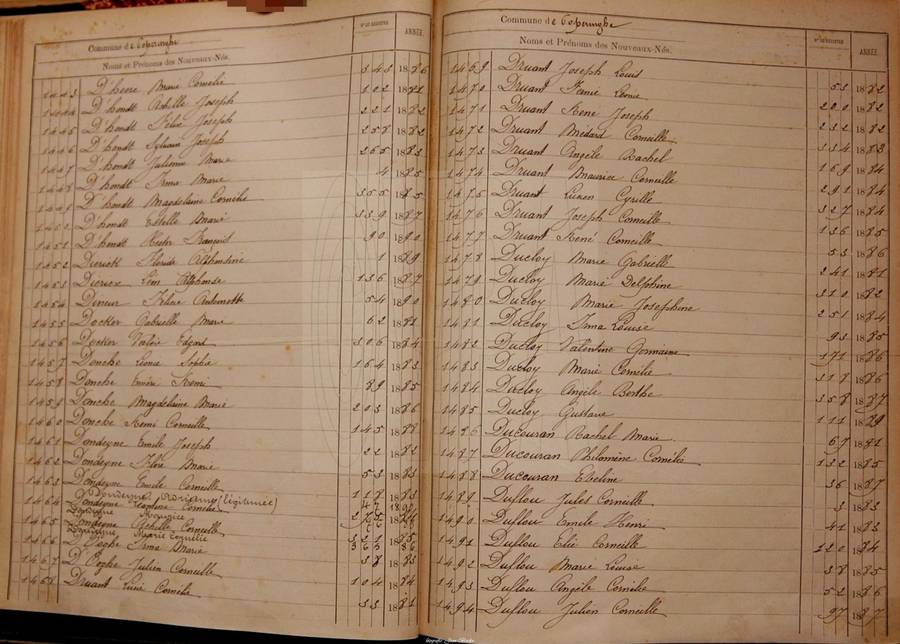 Commune de Poperinghe
Noms et Prénoms des Nouveaux-Nés.
ANNÉE
1443 D'hene Marie Cornelie 343 1886
1444 D'hondt Achille Joseph 102 1881
1445 D'hondt Félix Joseph 221 1882
1446 D'hondt Sylvain Joseph 258 1882
1447 D'hondt Julienne Marie 265 1883
1448 D'hondt Irma Marie 4 1885
1449 D'hondt Magdelaine Cornélie 355 1885
D'hondt Estelle Marie 339 1887
1451 D'hondt Hector François 90 1890
1252 Dierick Floride 1 1889
1453 Dierick Léon Alphonse 136 1887
1454 Dineur Antoinette 54 1890
1455 Docker Gabrielle Marie 62 1881
1456 Docker Valère Edgard 306 1884
1457 Donche Leonie Sophie 164 1883
1458 Donche Remi 89 1885
1459 Donche Magdelaine Marie 203 1886
1460 Donche Remi Corneille 145 1888
1461 Dondeyne Emile Joseph 22 1882
1462 Dondeyne Marie
1463 Dondeyne Emile Corneille 53 1883
Dondeyne (légitimée)
1464 Dondeyne Cornélie
Dondeyne Maurice
1465 Dondeyne Achille Corneille
Dondeyne Marie Cornélie
1466 D'Hoghe Irma Marie
1467 D'Hoghe Julien Corneille 104 1884
1468 Druant Cornélie 33 1881
Commune de Poperinghe
Noms et Prénoms des Nouveaux-Nés.
ANNÉE
1469 Druant Joseph Louis
1470 Druant Leonie 53 1882
1471 Druant René Joseph 220 1882
1472 Druant Médard Corneille 232 1882
1473 Druant Angèle Rachel 334 1883
1474 Druant Maurice Corneille 169 1884
1475 Druant Lucien Cyrille 291 1884
1476 Druant Joseph Corneille 327 1884
1477 Druant René Corneille 136 1885
1478 Ducloy Marie Gabrielle 53 1886
1479 Ducloy Marie Delphine 241 1881
1480 Ducloy Marie Josephine 310 1882
1481 Ducloy Irma Louise 251 1884
1482 Ducloy Valentine Germaine 93 1885
1483 Ducloy Marie Cornélie 171 1886
1484 Ducloy Angèle Berthe 318 1886
1485 Ducloy Gustave 358 1887
1486 Ducouran Rachel Marie 111 1889
1487 Ducouran Philomène Cornélie 67 1881
1488 Ducouran Eveline 132 1885
1489 Duflou Jules Corneille 36 1887
1490 Duflou Emile Henri 3 1883
1491 Duflou Elie Corneille 41 1883
1492 Duflou Marie Louise 120 1884
1493 Duflou Angèle Cornélie 38 1885
1494 Duflou Julien Corneille 52 1886
97 1887